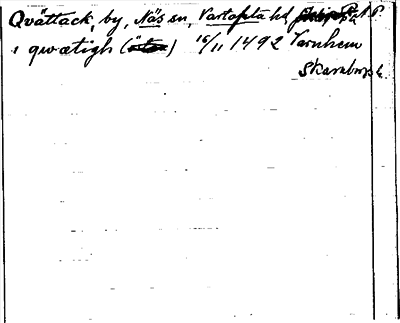 Qvättack, by, Näs sn, Vartofta hd P.
i qwætigh (östra) 16/11 1492 Varnhem
Skaraborgs l.